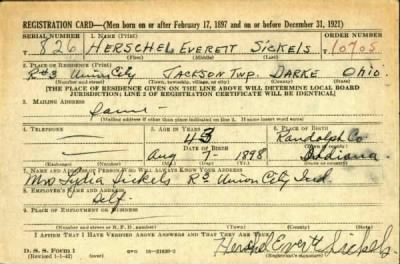 REGISTRATION CARD—(Men born on or after February 17, 1897 and on or before December 31, 1921)
SERIAL NUMBER 1. NAME (Print) ORDER NUMBER
T 826 HERSCHEL EVERETT SICKELS 10705
(First) (Middle) (Last)
2. PLACE OF RESIDENCE (Print)
R#3 Union City JACKSON TWP. DARKE OHIO.
(Number and street) (Town, township, village, or city) (County) (State)
[THE PLACE OF RESIDENCE GIVEN ON THE LINE ABOVE WILL DETERMINE LOCAL BOARD
JURISDICTION; LINE 2 OF REGISTRATION CERTIFICATE WILL BE IDENTICAL]
3. MAILING ADDRESS
Same
[Mailing address if other than place indicated on line 2. If same insert word same]
4. TELEPHONE 5. AGE IN YEARS 6. PLACE OF BIRTH
43 Randolph Co
DATE OF BIRTH (Town or county)
Aug 7- 1898 Indiana
(Exchange) (Number) (Mo.) (Day) (Yr.) (State or country)
7. NAME AND ADDRESS OF PERSON WHO WILL ALWAYS KNOW YOUR ADDRESS
Mrs Lydia Sickels Union City Ind
8. EMPLOYER'S NAME AND ADDRESS
Self.
9. PLACE OF EMPLOYMENT OR BUSINESS
(Number and street or R. F. D. number) (Town) (County) (State)
I AFFIRM THAT I HAVE VERIFIED ABOVE ANSWERS AND THAT THEY ARE TRUE.
D. S. S. Form 1
(Revised 1-1-42) (over) 16—21630-2 (Registrant's signature)